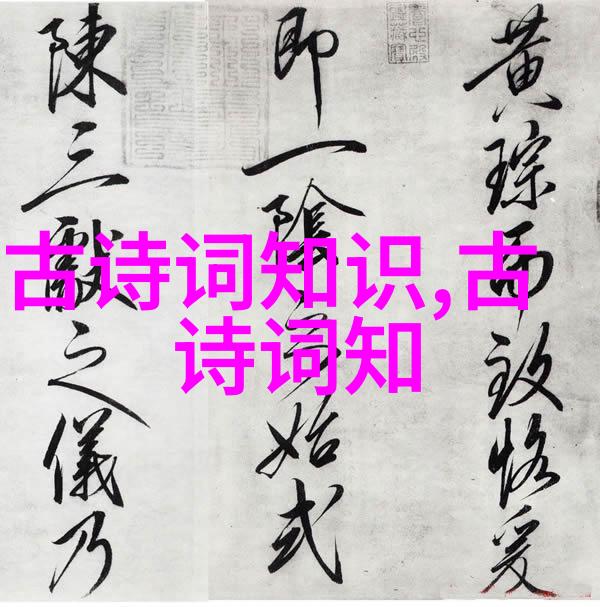 黄琮而致恪爰
即一陰始式
陳三獻之儀乃
古诗词知识,古
诗词知